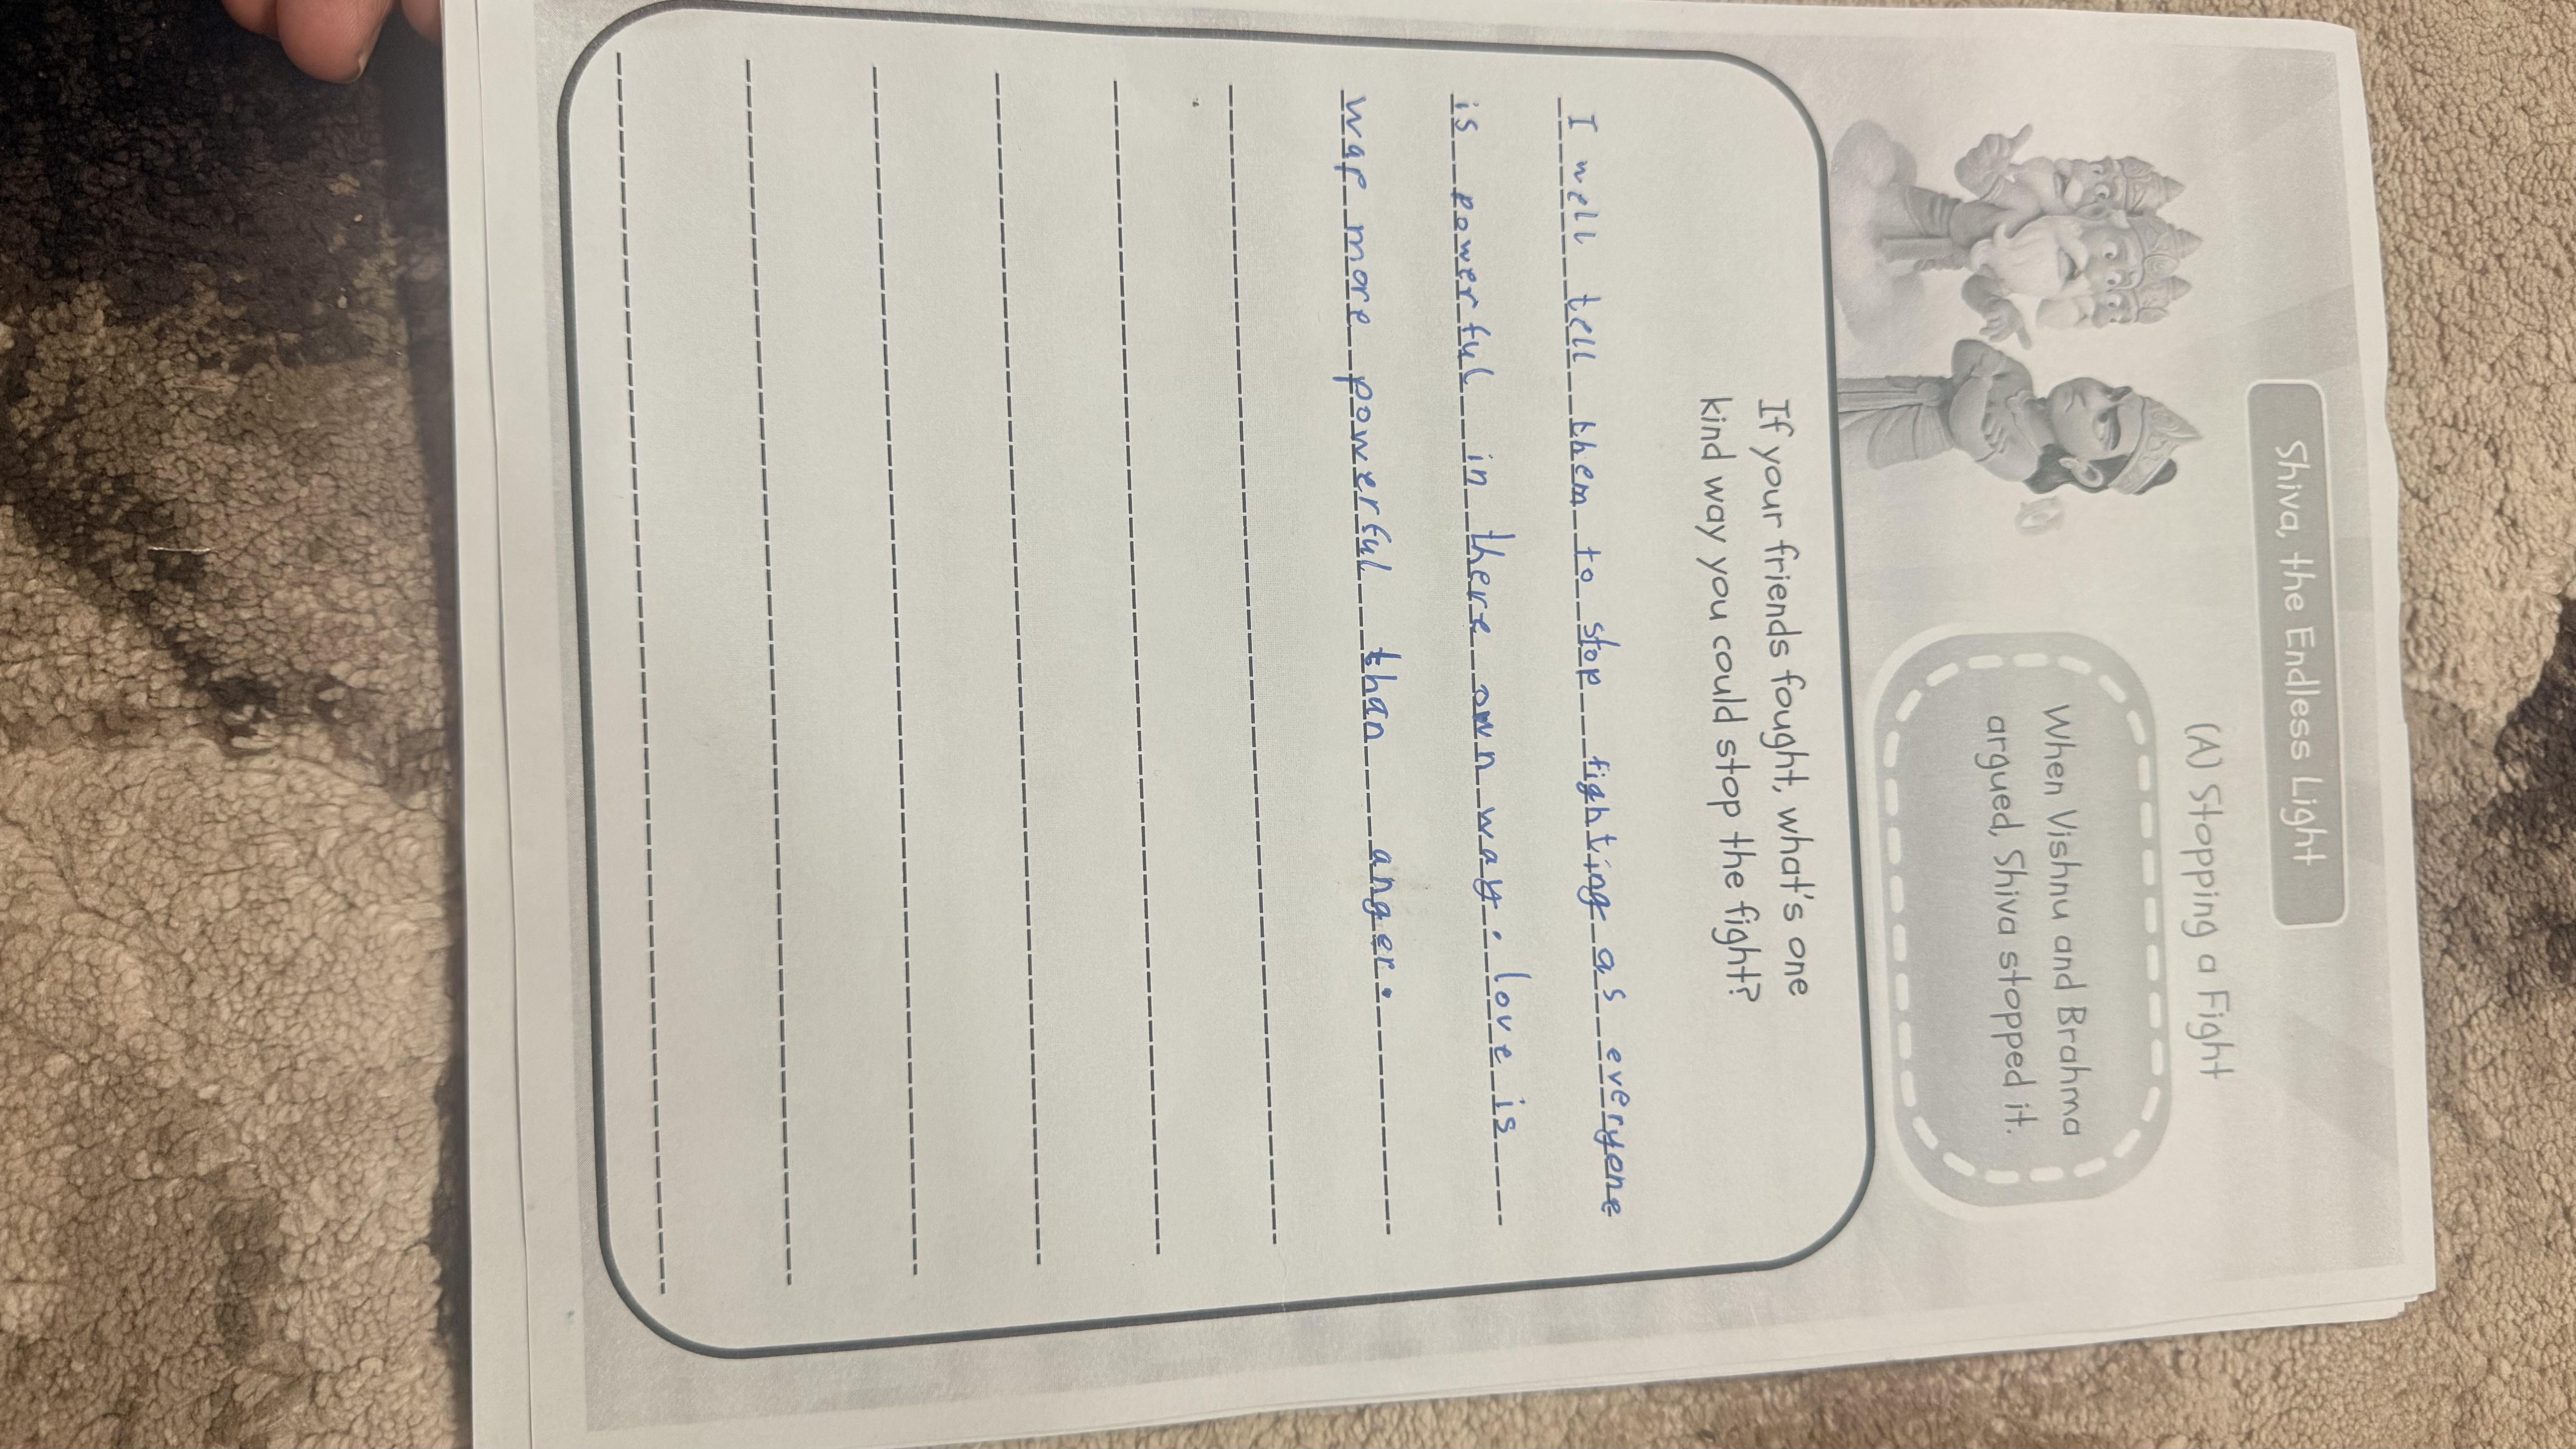 Shiva, the Endless Light
(A) Stopping a Fight
When Vishnu and Brahma
argued, Shiva stopped it.
If your friends fought, what's one
kind way you could stop the fight?
I well tell them to stop fighting as everyone
is powerful in there own way. love is
way more powerful than anger.